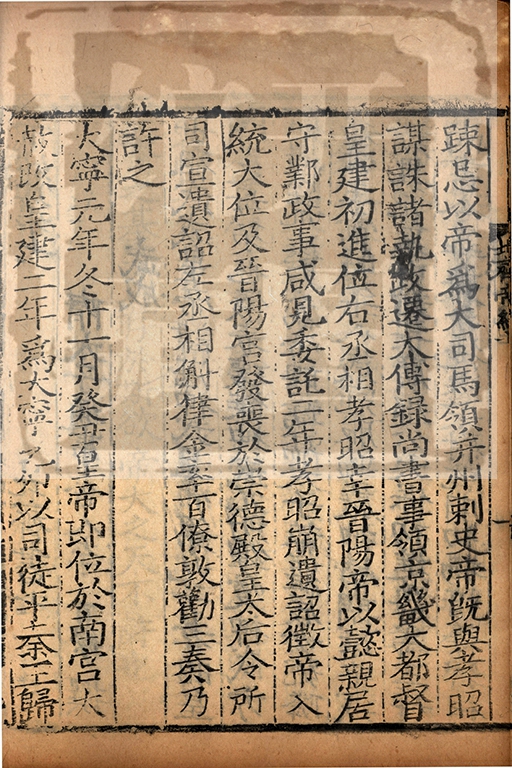 踈忌以帝爲大司馬領并州刺史帝既與孝昭
謀誅諸執政遷太傅録尚書事領京畿大都督
皇建初進位右丞相孝昭幸晉陽帝以懿親居
守鄴政事咸見委託二年孝昭崩遺詔徵帝入
統大位及晉陽宫發喪於崇德殿皇太后令所
司宣遺詔左丞相斛律金率百僚敦勸三奏乃
許之
大寧元年冬十一月癸丑皇帝即位於南宫大
赦改皇建二年爲大寧乙卯以司徒平秦王歸